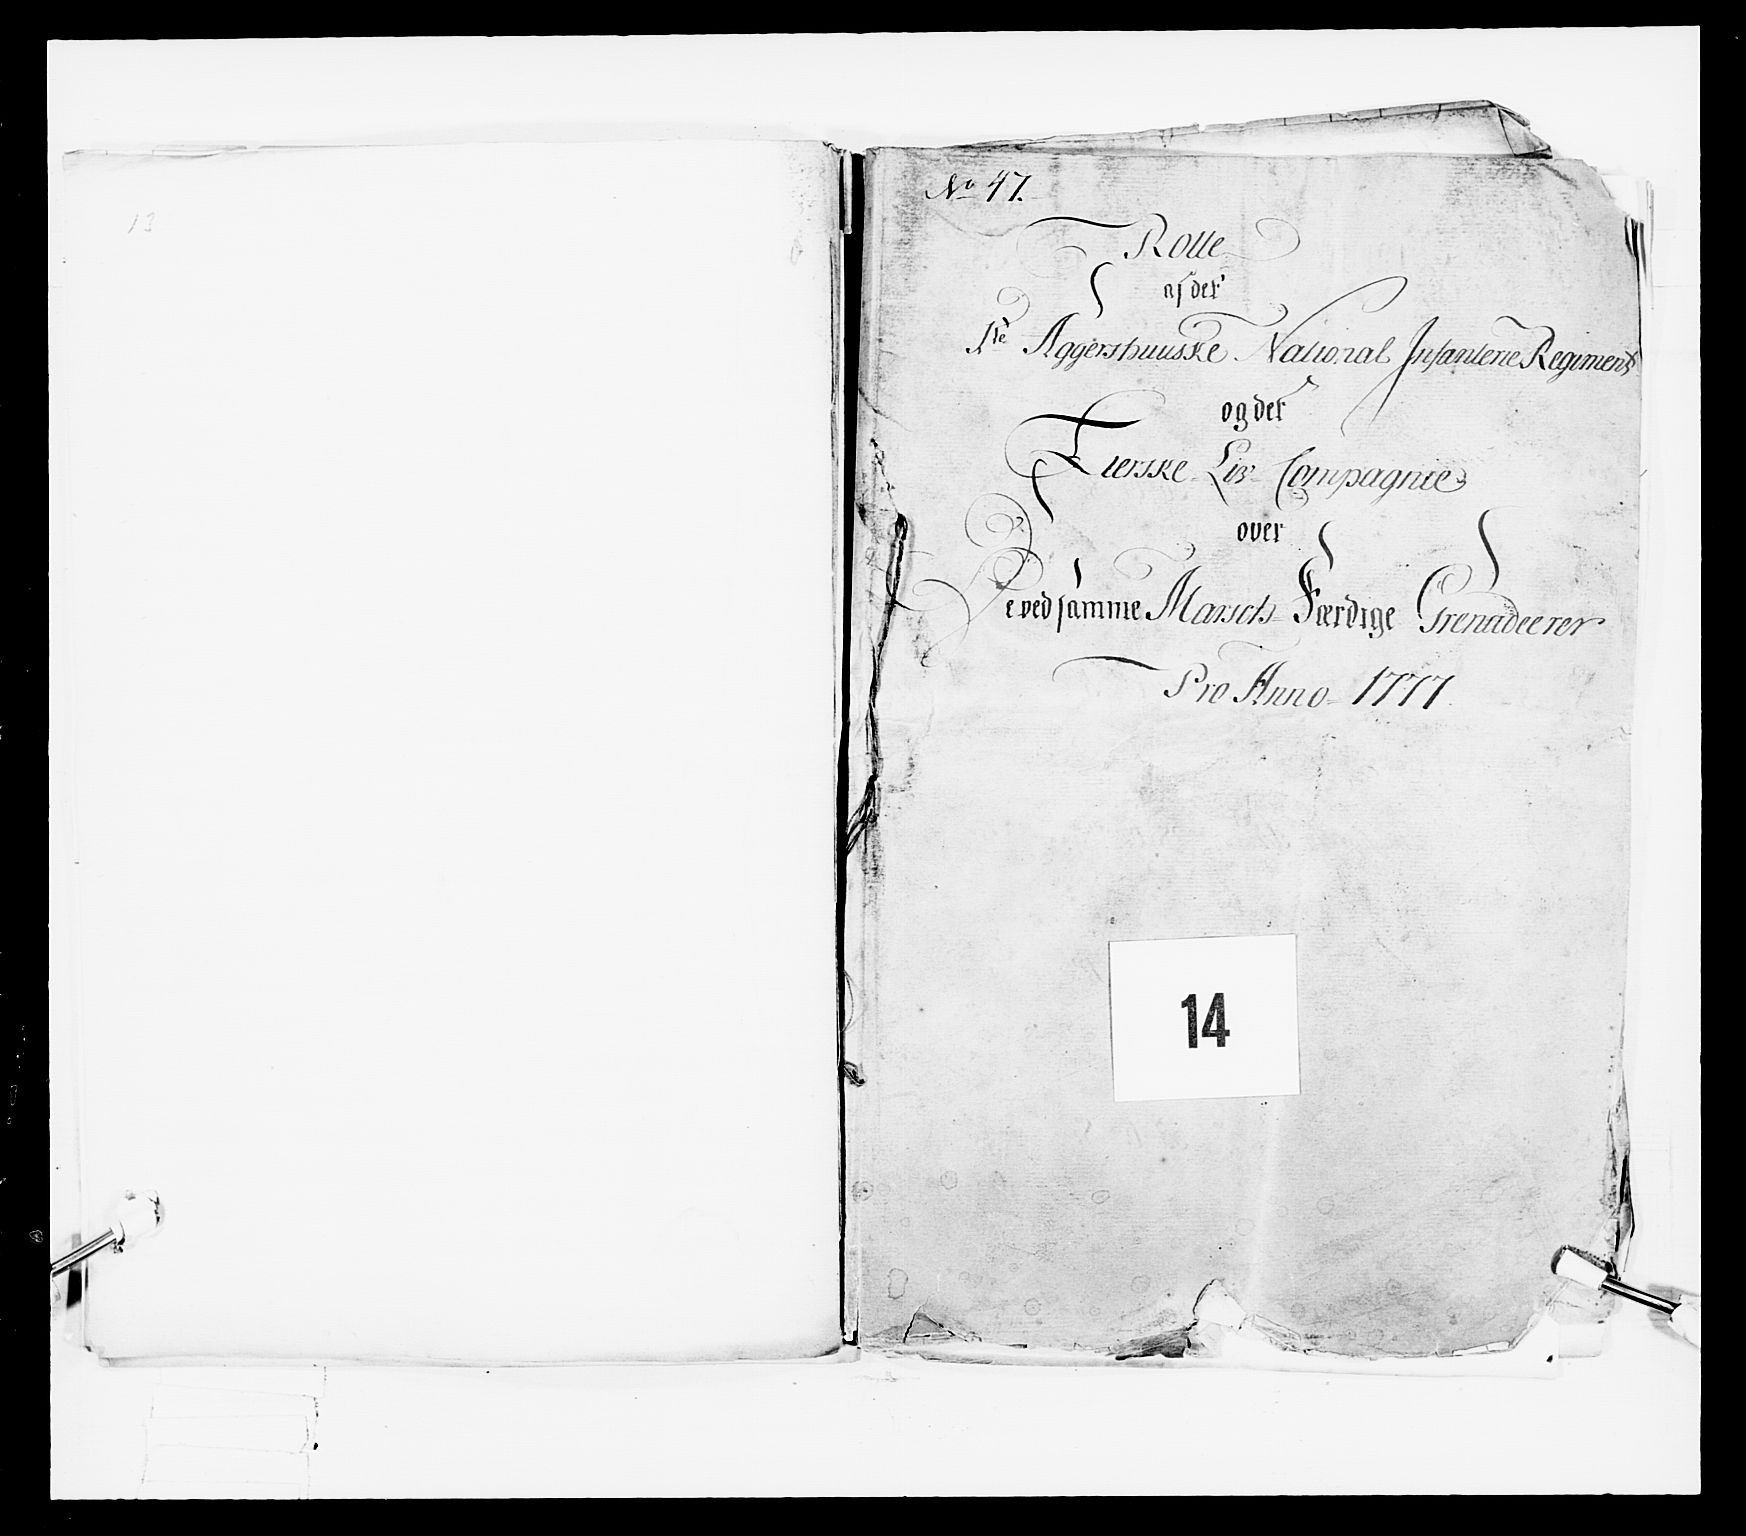 13
No 47.
Rolle
af det
1te Aggershuuske National Infanterie Regiment
og det
Lierske Liv Compagnie
over
De ved samme Marsch Færdige Grenadeerer
Pro Anno 1777.
14